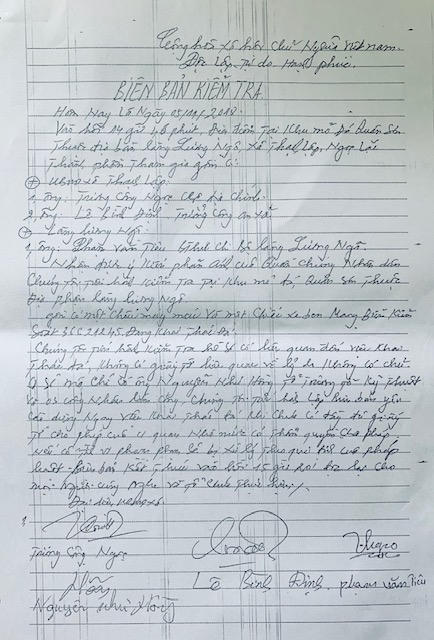 Cộng hòa xã hội Chủ Nghĩa Việt nam
Độc Lập Tự do Hạnh phúc.
BIÊN BẢN KIỂM TRA
Hôm Nay Là Ngày 05/11/2018.
Vào hồi 14 giờ 10 phút, Địa điểm Tại Khu mỏ Đá Quần Sơn
Thuộc địa bàn làng Lương Ngô, xã Thạch Lập, Ngọc Lặc
Thành phần Tham gia gồm có:
+ UBND xã Thạch Lập:
1, ông: Trương Công Ngọc Chức địa Chính.
2, ông: Lê Bình Định, Trưởng Công An xã.
+ Làng Lương Ngô:
1, ông: Phạm Văn Tiêu Bí thư Chi Bộ làng Lương Ngô.
Nhận được ý kiến phản ánh của Quần Chúng Nhân dân
Chúng tôi tiến hành Kiểm tra Tại Khu mỏ đá Quần Sơn Thuộc
Địa phận làng Lương Ngô.
gồm có một Chiếc máy múc Và một Chiếc xe ben Mang Biển Kiểm
Soát Đang Khai Thác Đá.
Chúng Tôi Tiến hành Kiểm Tra hồ sơ có liên quan đến việc Khai
Thác đá, Không có giấy tờ liên quan về lý do Không có chủ
ở mỏ chỉ có ông Nguyễn Như Hồng Tổ Trưởng Tổ Kỹ Thuật
Và 03 công Nhân làm công, Chúng tôi Tiến hành Lập biên bản yêu
cầu dừng Ngay việc Khai Thác đá Khi Chưa có đầy đủ giấy
Tờ cho phép của cơ quan Nhà nước có Thẩm quyền Cho phép
Nếu cố tình vi phạm phạm sẽ bị xử lý Theo quy định của pháp
luật. Biên bản Kết Thúc vào hồi 15 giờ đọc lại cho
mọi Người cùng Nghe và Thực hiện./
Đại diện UBND xã
Trương Công Ngọc
Lê Bình Định. phạm văn Tiêu
Nguyễn như Hồng